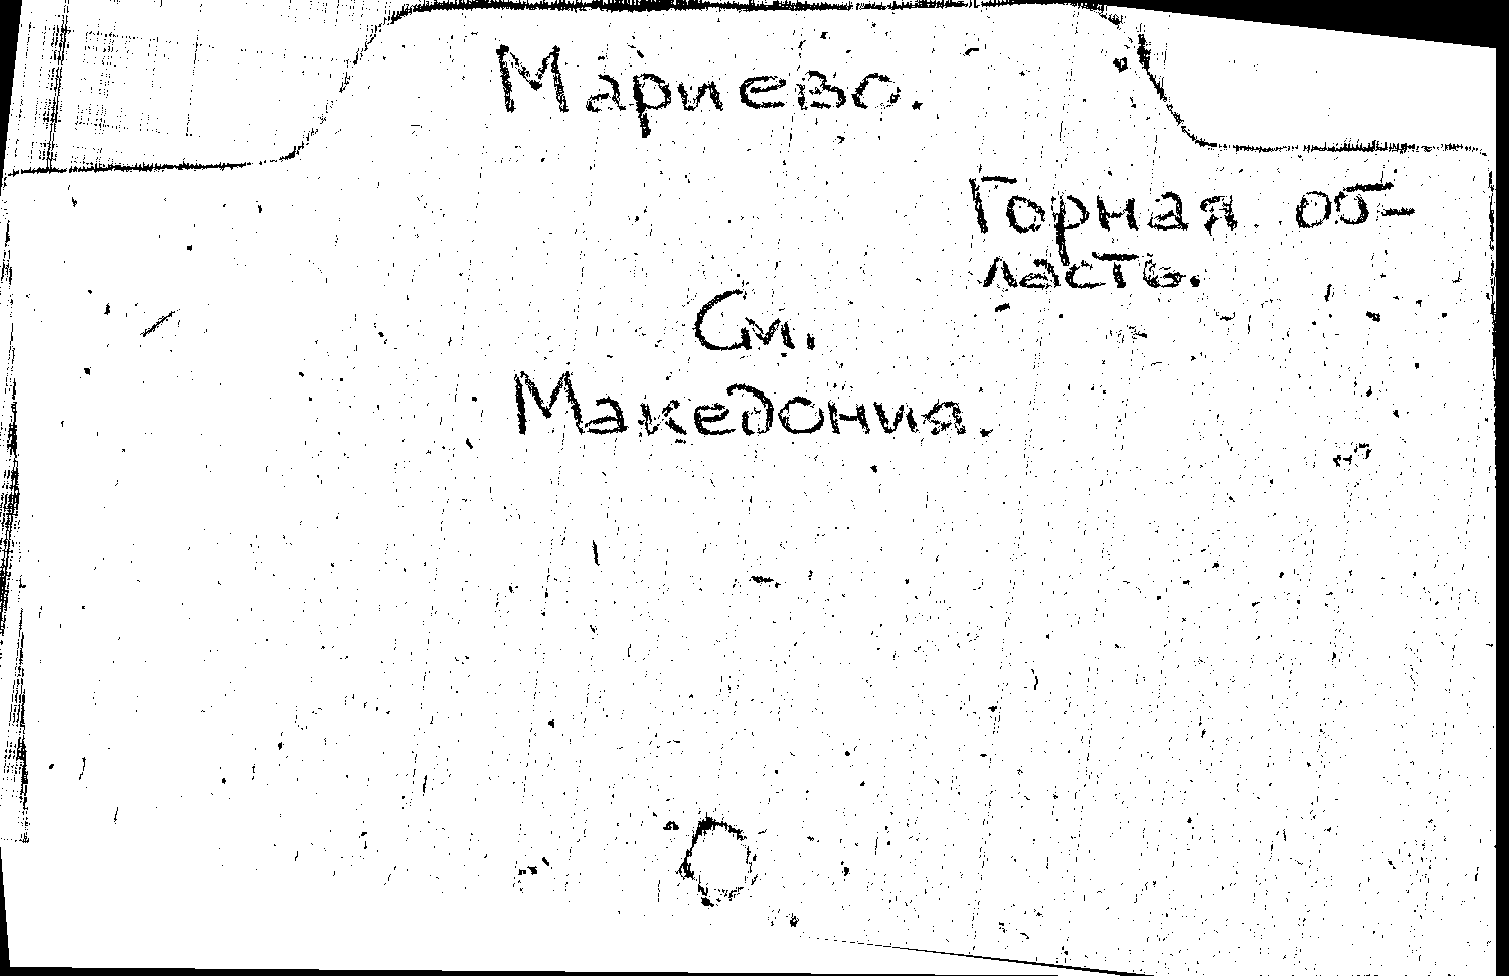 Мариево.
Горная об-
ласть.
См.
Македония.